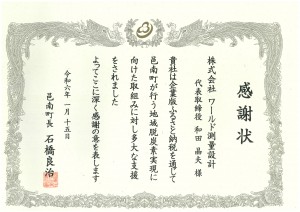 感謝状
株式会社 ワールド測量設計
代表取締役 和田 晶夫 様
貴社は企業版ふるさと納税を通して
邑南町が行う地域脱炭素実現に
向けた取組みに対し多大な支援
をされました
よってここに深く感謝の意を表します
令和六年一月十五日
邑南町長 石橋良治